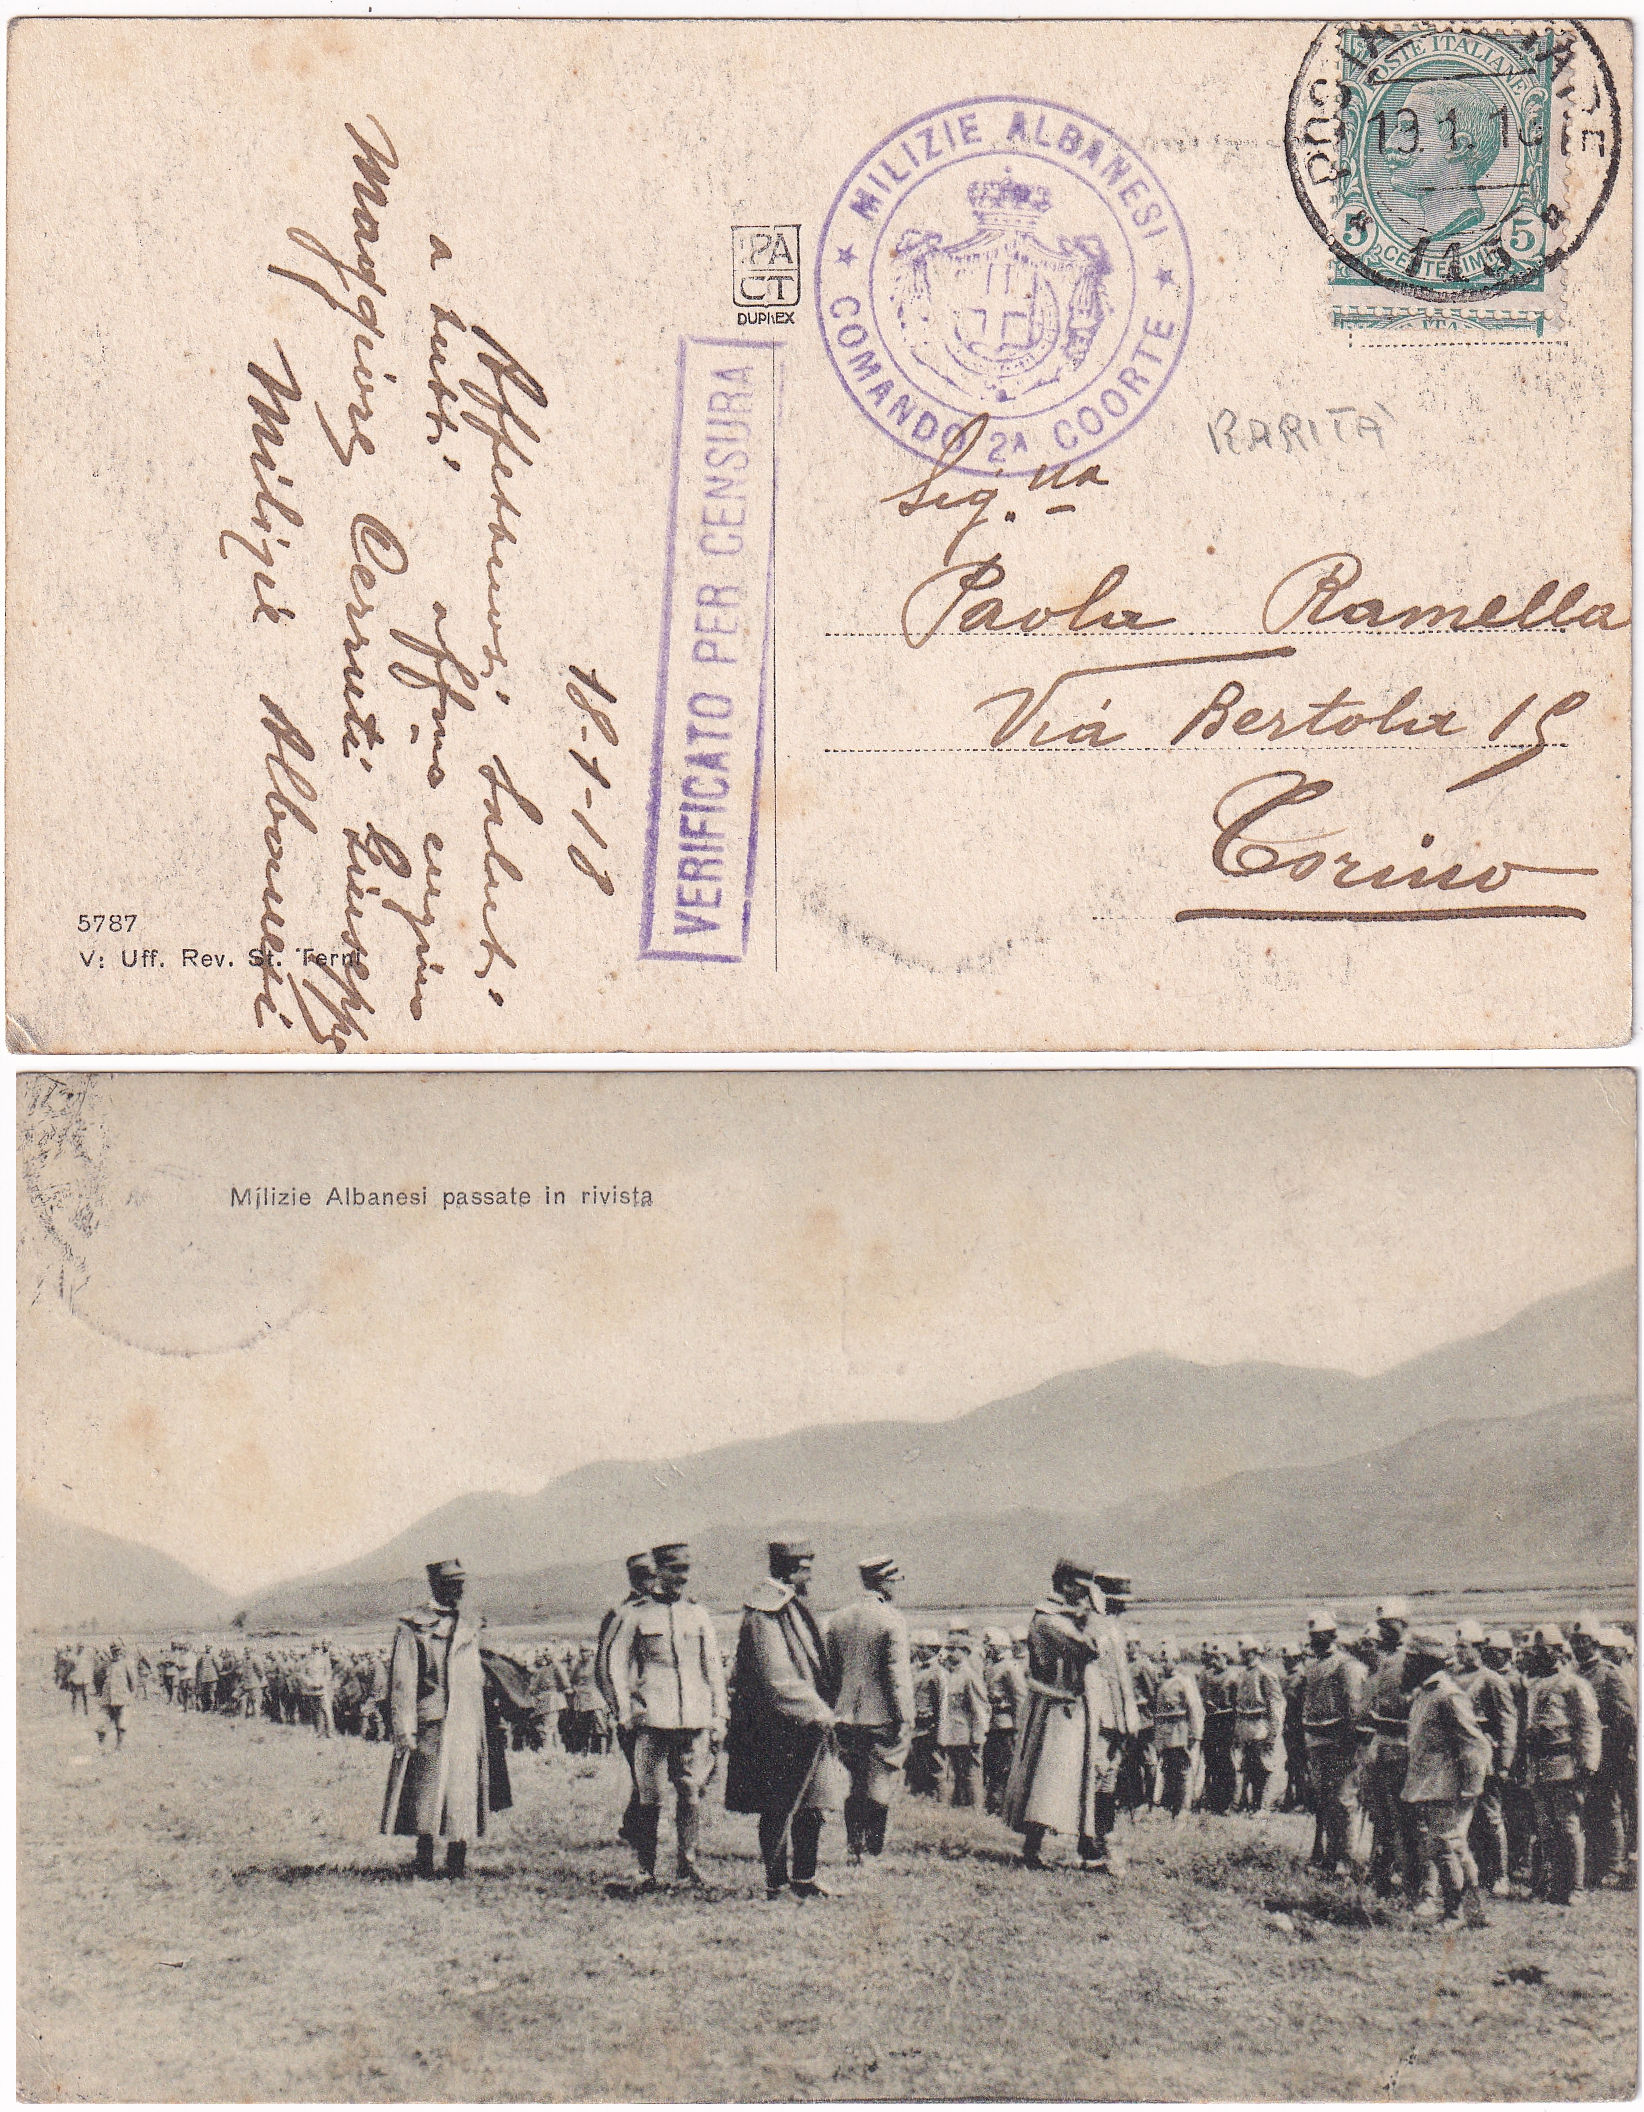 POSTA MILITARE
19.1.18
113
POSTE ITALIANE
5 CENTESIMI 5
MILIZIE ALBANESI
COMANDO 2ᴬ COORTE
IPA
CT
DUPLEX
VERIFICATO PER CENSURA
RARITÀ
18-1-18
Affettuosi saluti
a tutti aff.mo cugino
Maggiore Cerruti Giuseppe
Milizie Albanesi
Sig.na
Paola Ramella
Via Bertola 15
Torino
5787
V: Uff. Rev. St. Terni
Milizie Albanesi passate in rivista